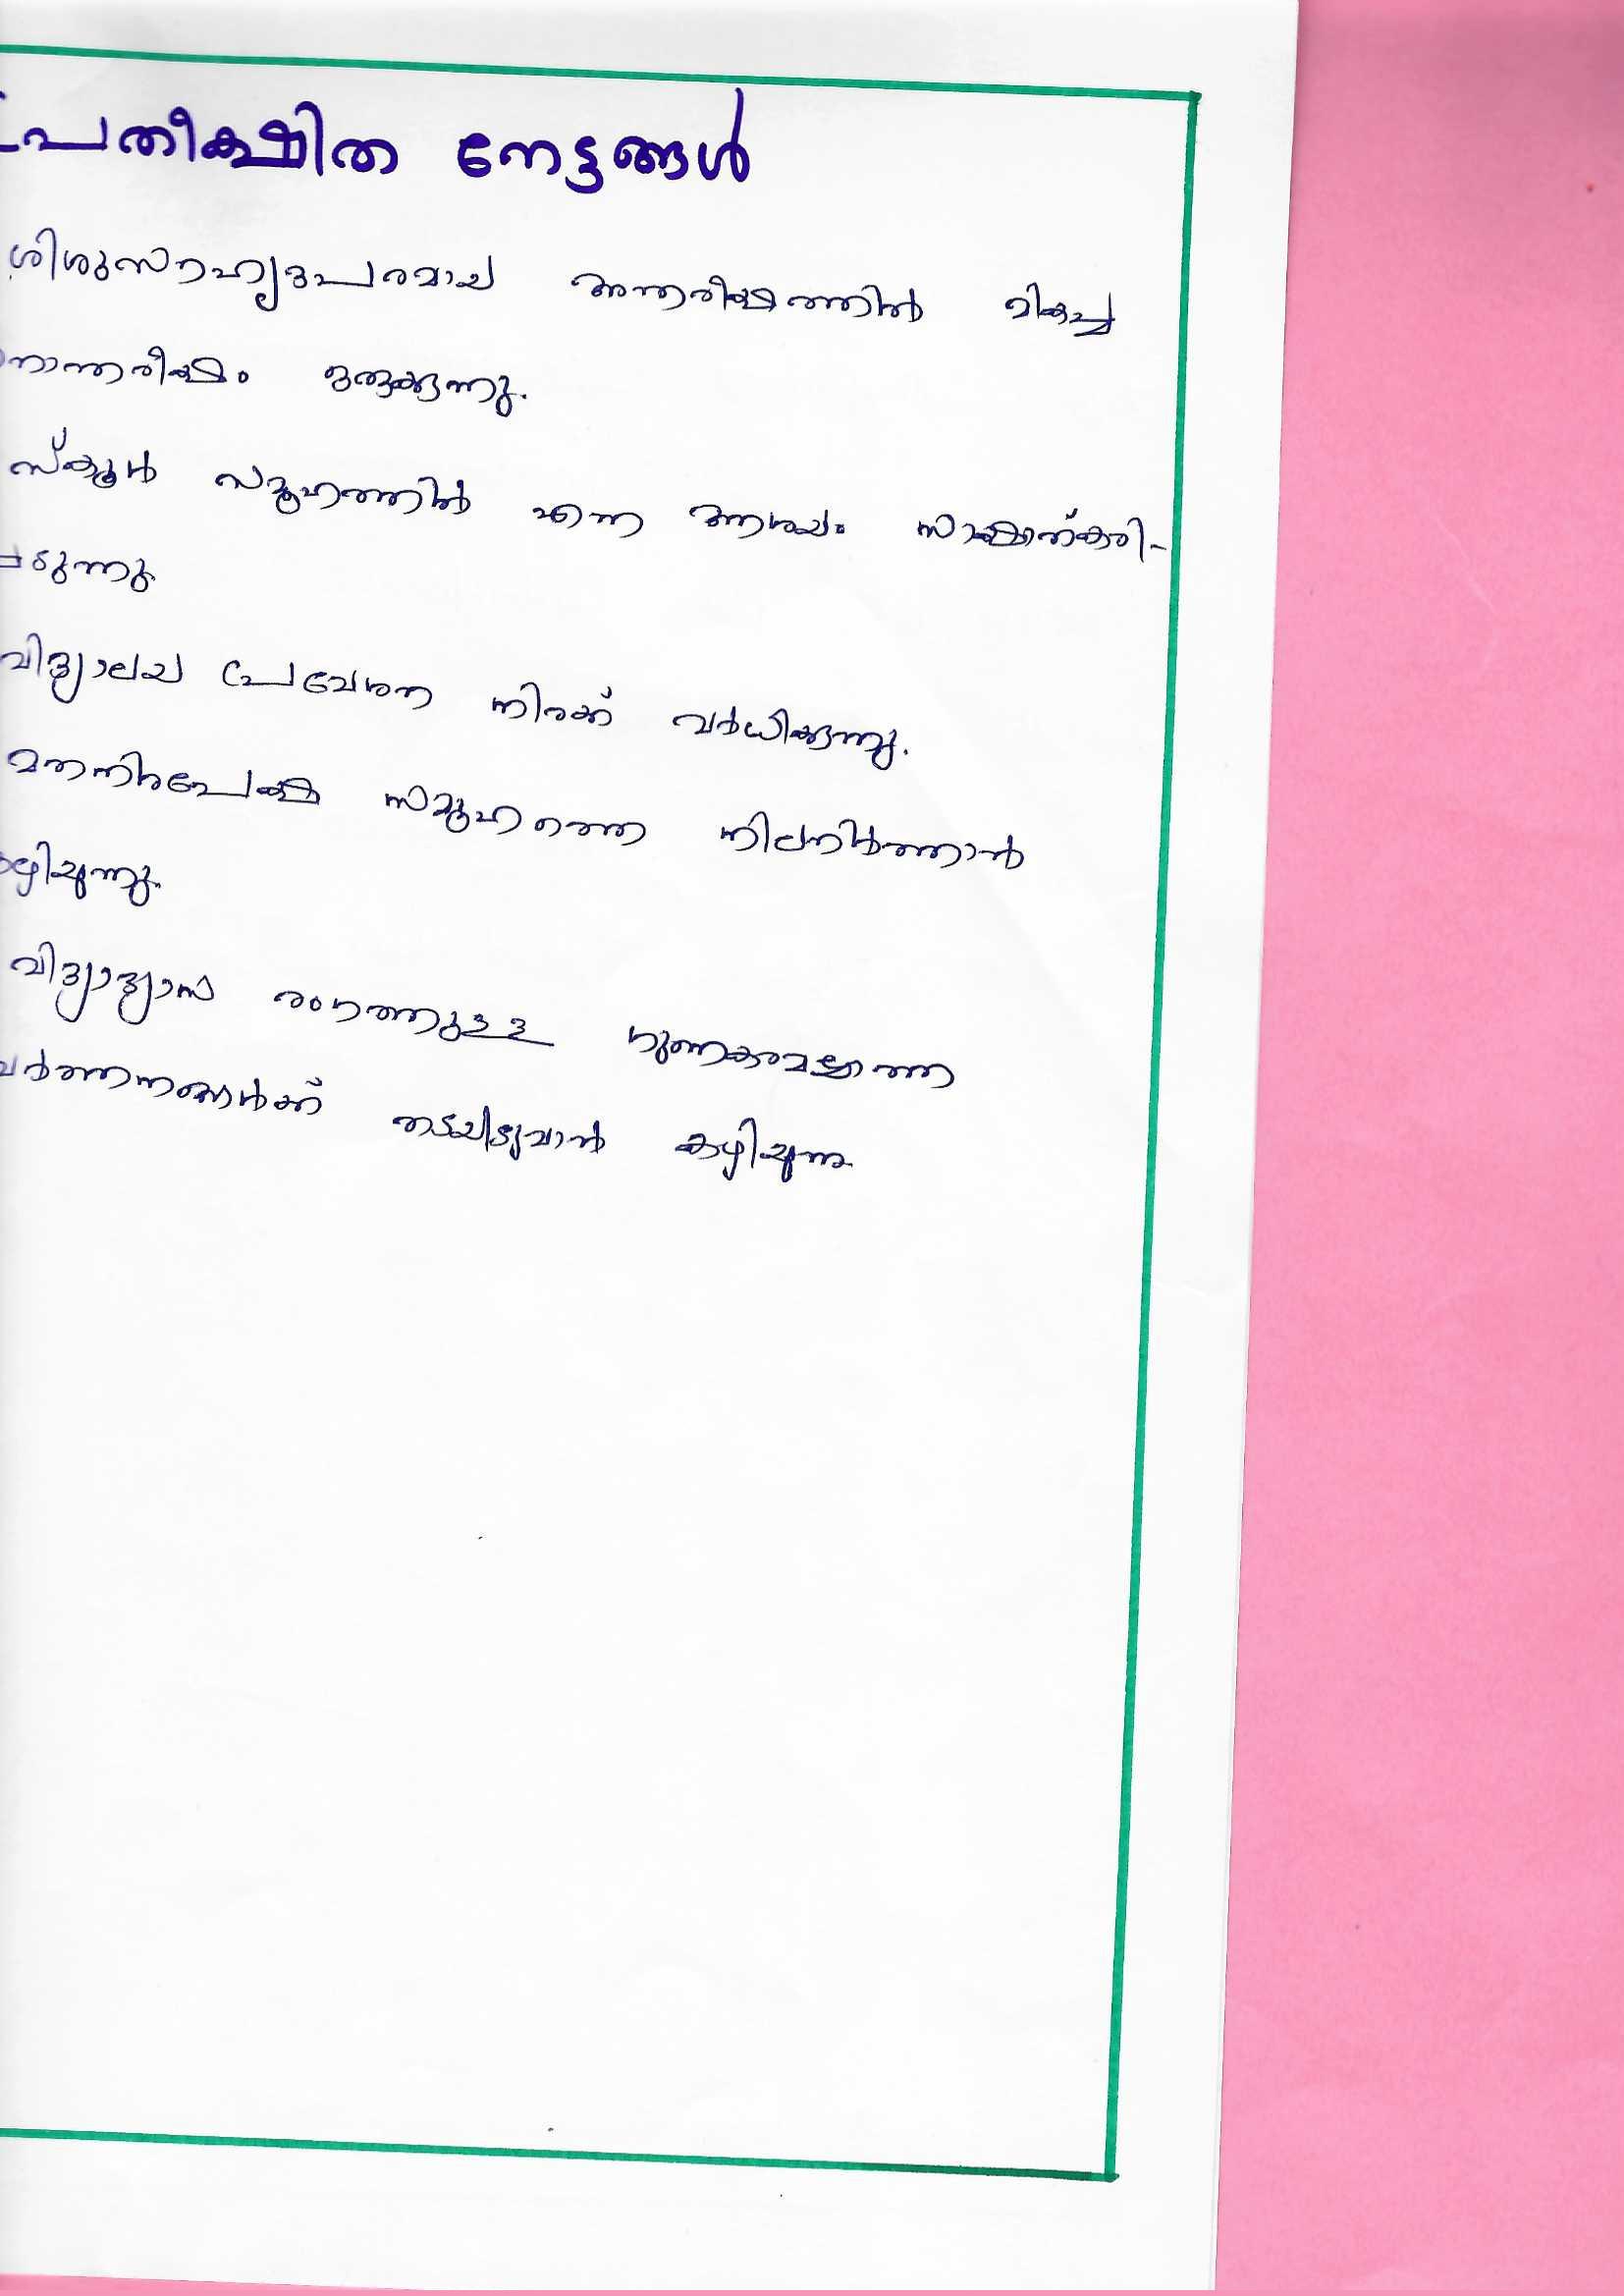 പ്രതീക്ഷിത നേട്ടങ്ങൾ
ശിശുസൗഹൃദപരമായ അന്തരീക്ഷത്തിൽ മികച്ച
നാന്തരീക്ഷം ഒരുക്കുന്നു.
സ്കൂൾ സമൂഹത്തിൽ എന്ന ആശയം സാക്ഷാത്കരി-
ടുന്നു.
വിദ്യാലയ പ്രവേശന നിരക്ക് വർധിക്കുന്നു.
മതനിരപേക്ഷ സമൂഹത്തെ നിലനിർത്താൻ
ഴിയുന്നു.
വിദ്യാഭ്യാസ രംഗത്തുള്ള ഗുണകരമല്ലാത്ത
വർത്തനങ്ങൾക്ക് തടയിടുവാൻ കഴിയുന്നു